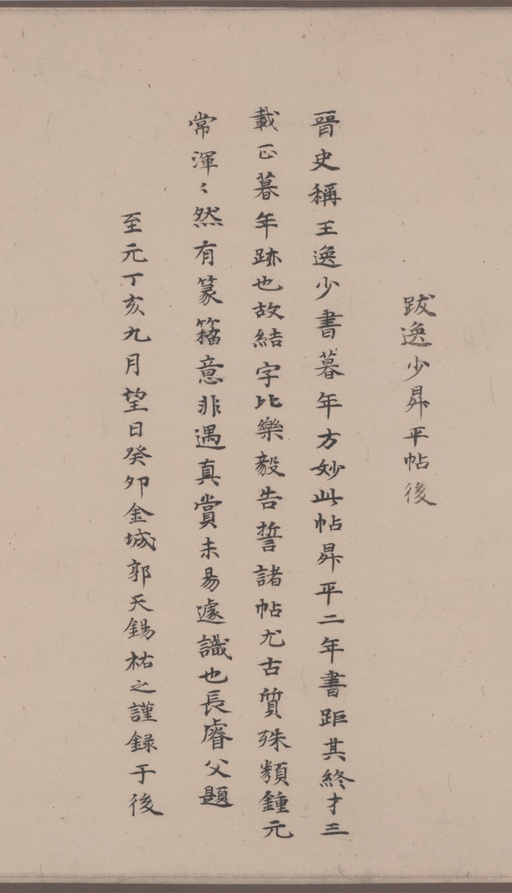 跋逸少昇平帖後
晉史稱王逸少書暮年方妙此帖昇平二年書距其終才三
載正暮年跡也故結字比樂毅告誓諸帖尤古質殊類鍾元
常渾〻然有篆籀意非遇真賞未易遽識也長睿父題
至元丁亥九月望日癸卯金城郭天錫祐之謹録于後